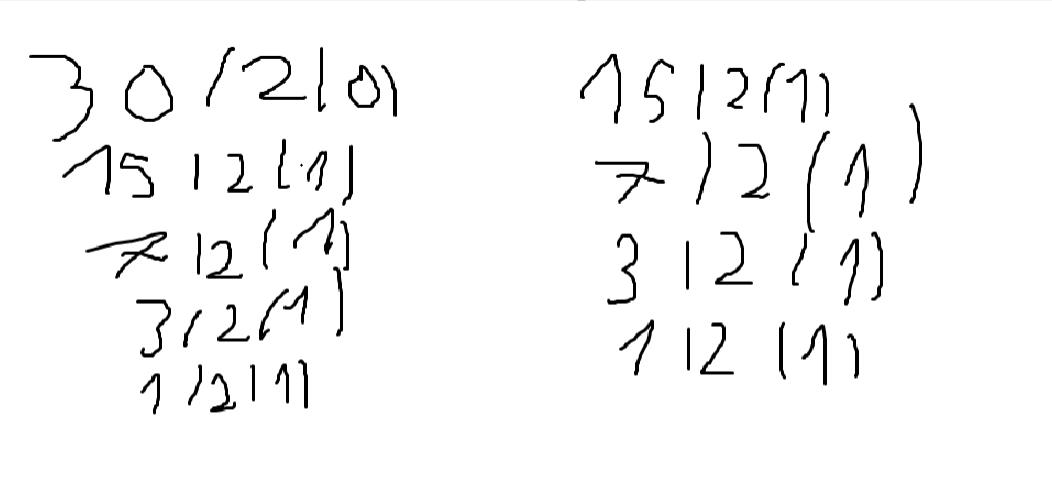 30/2(0)
15/2(1)
7/2(1)
3/2(1)
1/2(1)
15/2(1)
7/2(1)
3/2(1)
1/2(1)